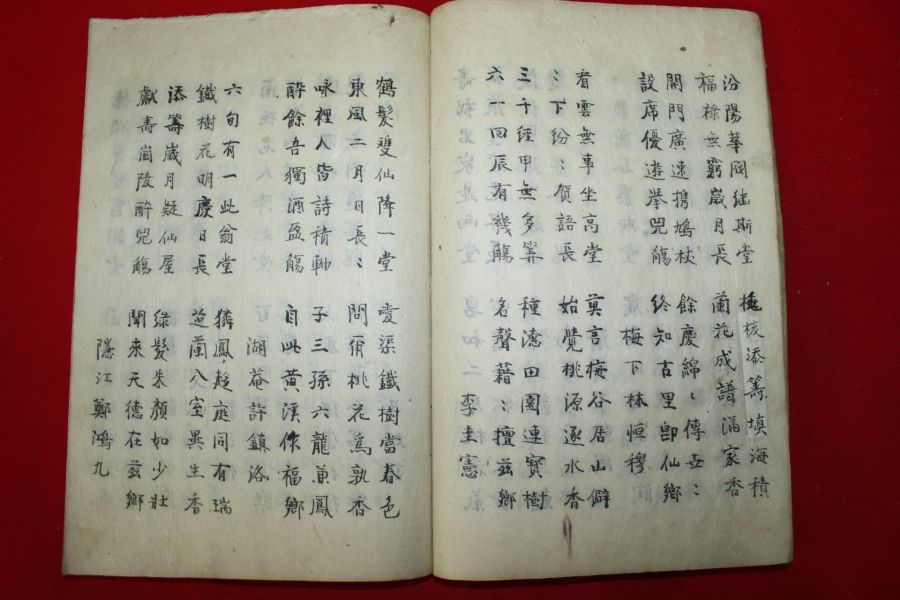 汾陽華閥繼斯堂 桃核添籌填海積
福祿無窮歲月長 蘭花成譜滿家香
開門廣速携鳩杖 餘慶綿〻傳世〻
設席優遊擧兕觴 終知古里卽仙鄕
梅下林恒穆
看雲無事坐高堂 莫言梅谷居山僻
〻下紛〻賀語長 始覺桃源逐水香
三千經甲無多算 種德田園連寶樹
六一回辰有幾觴 名聲藉〻擅玆鄕
李圭憲
鶴髮雙仙降一堂 愛渠鐵樹當春色
東風二月日長〻 問爾桃花爲孰香
咏裡人皆詩積軸 子三孫六龍兼鳳
醉餘吾獨酒盈觴 自此黃溪作福鄕
湖菴許鎭洛
六旬有一此翁堂 獜鳳趍庭同有瑞
鐵樹花明慶日長 芝蘭入室異生香
添籌歲月疑仙屋 綠髮朱顔如少壯
獻壽崗陵醉兕觴 聞來天德在玆鄕
隱江鄭鴻九